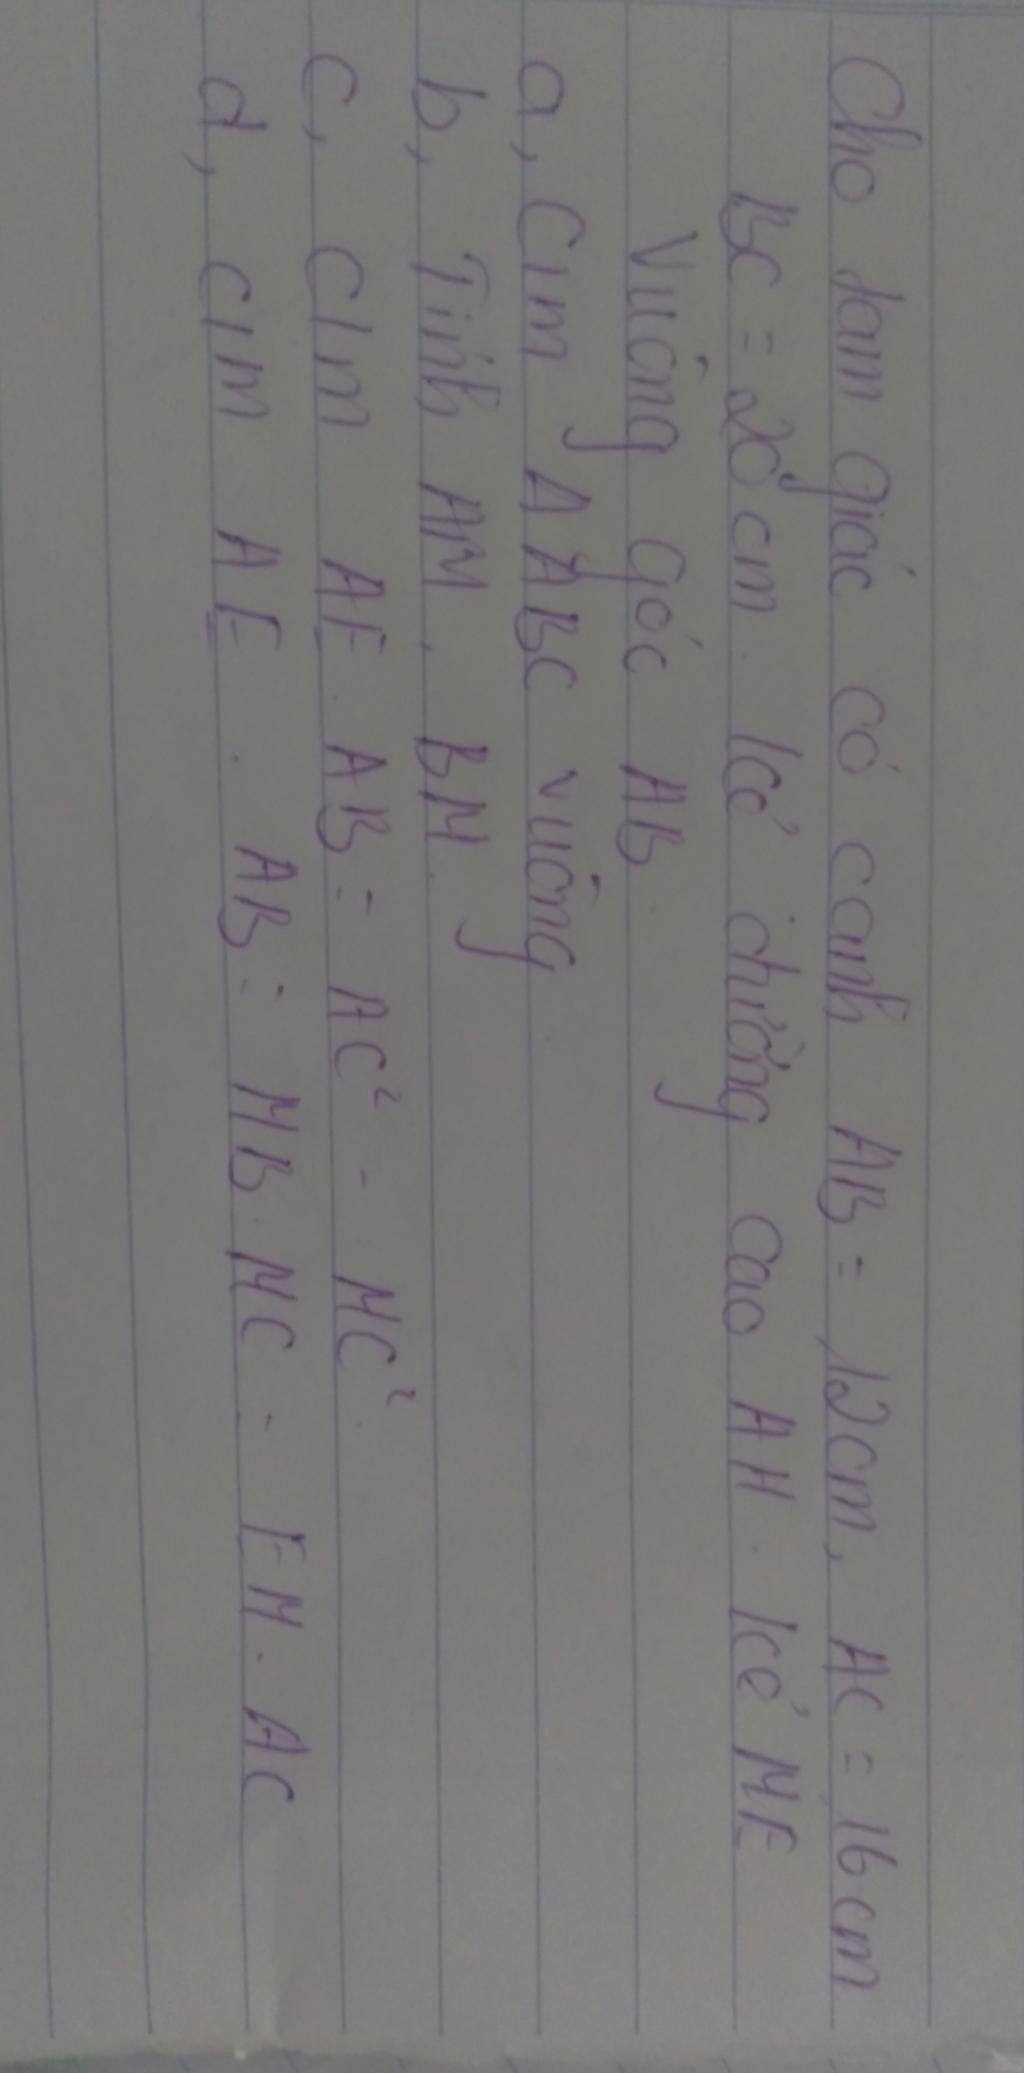 Cho tam giác có cạnh AB = 12cm, AC = 16cm
BC = 20cm. Kẻ đường cao AH. Kẻ ME
Vuông góc AB.
a, C/m △ ABC vuông.
b, Tính AM, BM.
c, C/m AE. AB = AC² - MC².
d, c/m AE. AB = MB. MC = EM. AC